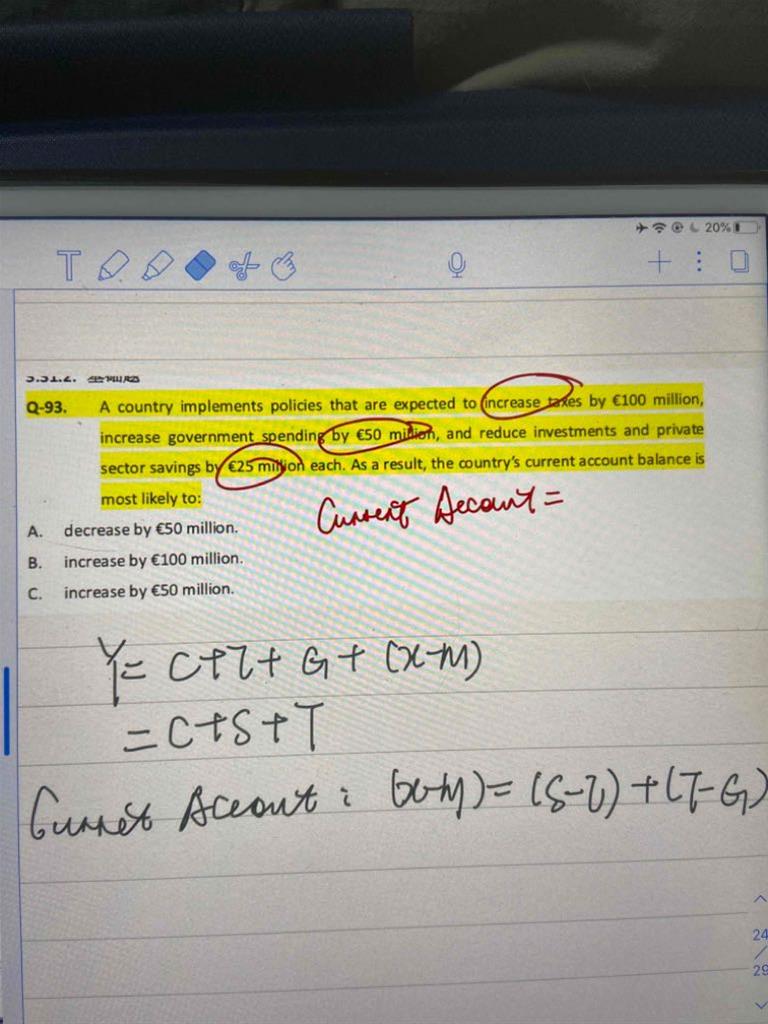 20%
T
Q-93. A country implements policies that are expected to increase taxes by €100 million,
increase government spending by €50 million, and reduce investments and private
sector savings by €25 million each. As a result, the country's current account balance is
most likely to:
Current Account =
A. decrease by €50 million.
B. increase by €100 million.
C. increase by €50 million.
Y = C+I+G+(X-M)
= C+S+T
Current Account: (X-M) = (S-I)+(T-G)
24
/
29